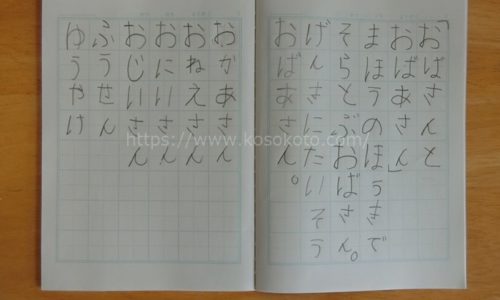 「おばさんと
おばあさん」
まほうのほうきで
そらとぶおばさん。
げんきにたいそう
おばあさん。
おかあさん
おねえさん
おにいさん
おじいさん
ふうせん
ゆうやけ
https://www.kosokoto.com/